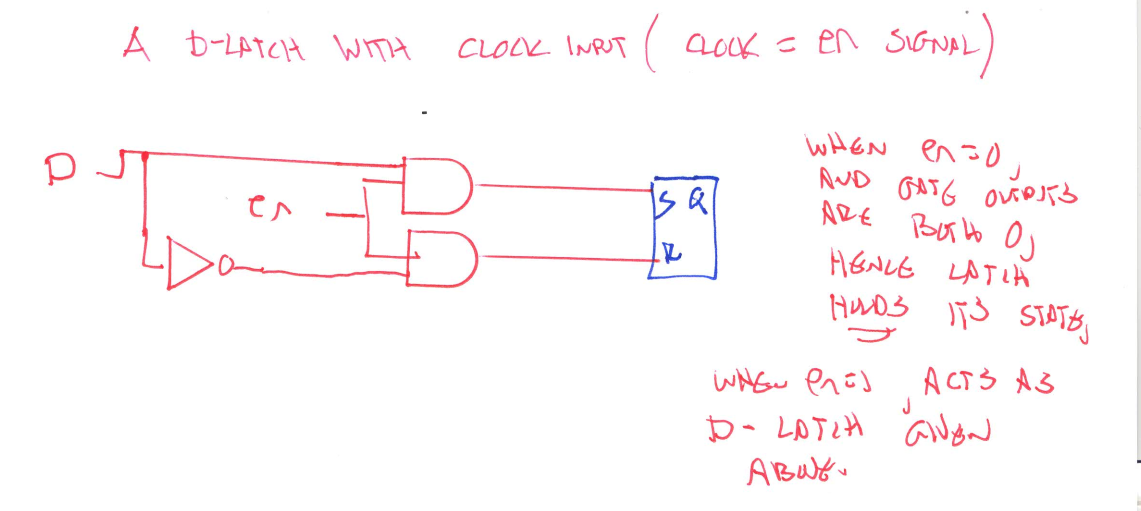 A D-LATCH WITH CLOCK INPUT ( CLOCK = en SIGNAL)
D
en
S Q
R
WHEN en=0,
AND GATE OUTPUTS
ARE BOTH 0,
HENCE LATCH
HOLDS ITS STATE,
WHEN en=1, ACTS AS
D- LATCH GIVEN
ABOVE.